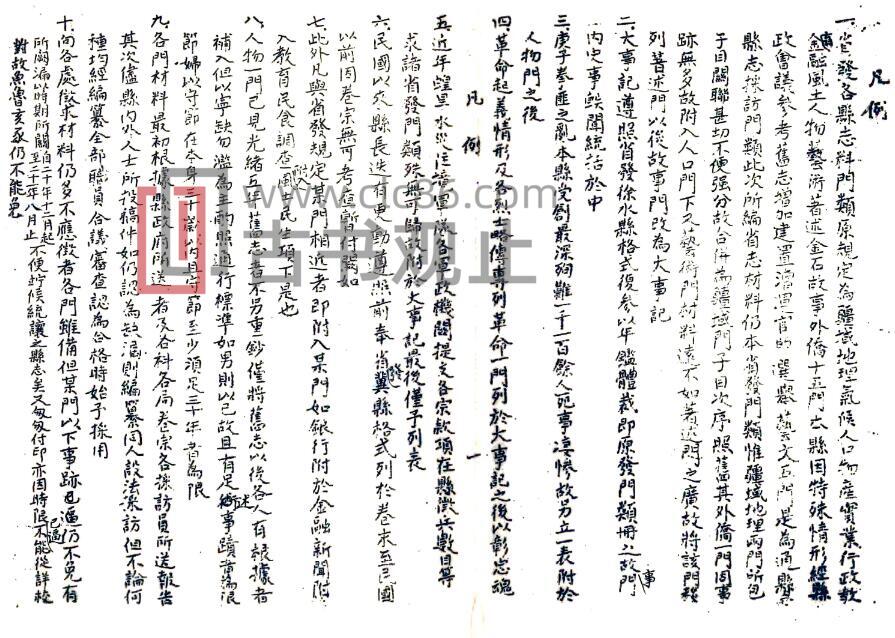 凡例
一省發各縣志料門類原規定為疆域地理氣候人口物產實業行政教育
金融風土人物藝術著述金石故事外僑十五門本縣因特殊情形經縣
政會議參考舊志增加建置選舉藝文五門是為通縣
縣志採訪門類此次所編省志材料仍本省發門類惟疆域地理兩門所包
子目關聯甚切不便強分故合併為疆域門子目次序照舊其外僑一門因事
跡無多故附入人口門下又藝術門材料遠不如著述門之廣故將該門類
列著述門以後故事門改為大事記
二大事記遵照省發徐水縣格式復參以年鑑體裁即原發門類冊之故事門
內史事軼聞統括於中
三庚子拳匪之亂本縣受創最深殉難一千一百餘人死事淒慘故另立一表附於
人物門之後
凡例
一
四革命起義情形及各烈士略傳專列革命一門列於大事記之後以彰忠魂
五近年蝗旱水災往境軍隊各軍政機關提支各宗款項在縣徵兵數目等
求諸省發門類殊無可歸故附於大事記最後僅予列表
六民國以來縣長迭有更動遵照前奉省發冀縣格式列於卷末至民國
以前因卷宗無可考查暫付闕如
七此外凡與省發規定某門相近者即附入某門如銀行附於金融新聞附
入教育民食調查附入風土民生項下是也
八人物一門已見光緒五年舊志者不另重鈔僅將舊志以後各人有根據者
補入但以寧缺勿濫為主酌照通行標準如男則以已故且有足述事蹟者為限
節婦以守節在本身三十歲以內且守節至少須足三十年者為限
九各門材料最初根據縣政府所送者及各科各局卷宗各採訪員所送報告
其次儘縣內外人士所投稿件如仍認為缺漏則編纂同人設法採訪但不論何
種均經編纂全部職員合議審查認為合格時始予採用
十向各處徵求材料仍多不應徵者各門雖備但某門以下事跡缺仍不免有
所闕漏以時期所關自二十年十二月起至二十一年八月止不便佇候統讓之縣志矣又匆匆付印亦因時限已過不能從詳校
對故魚魯亥豕仍不能免
www.cc98.com
古籍观止